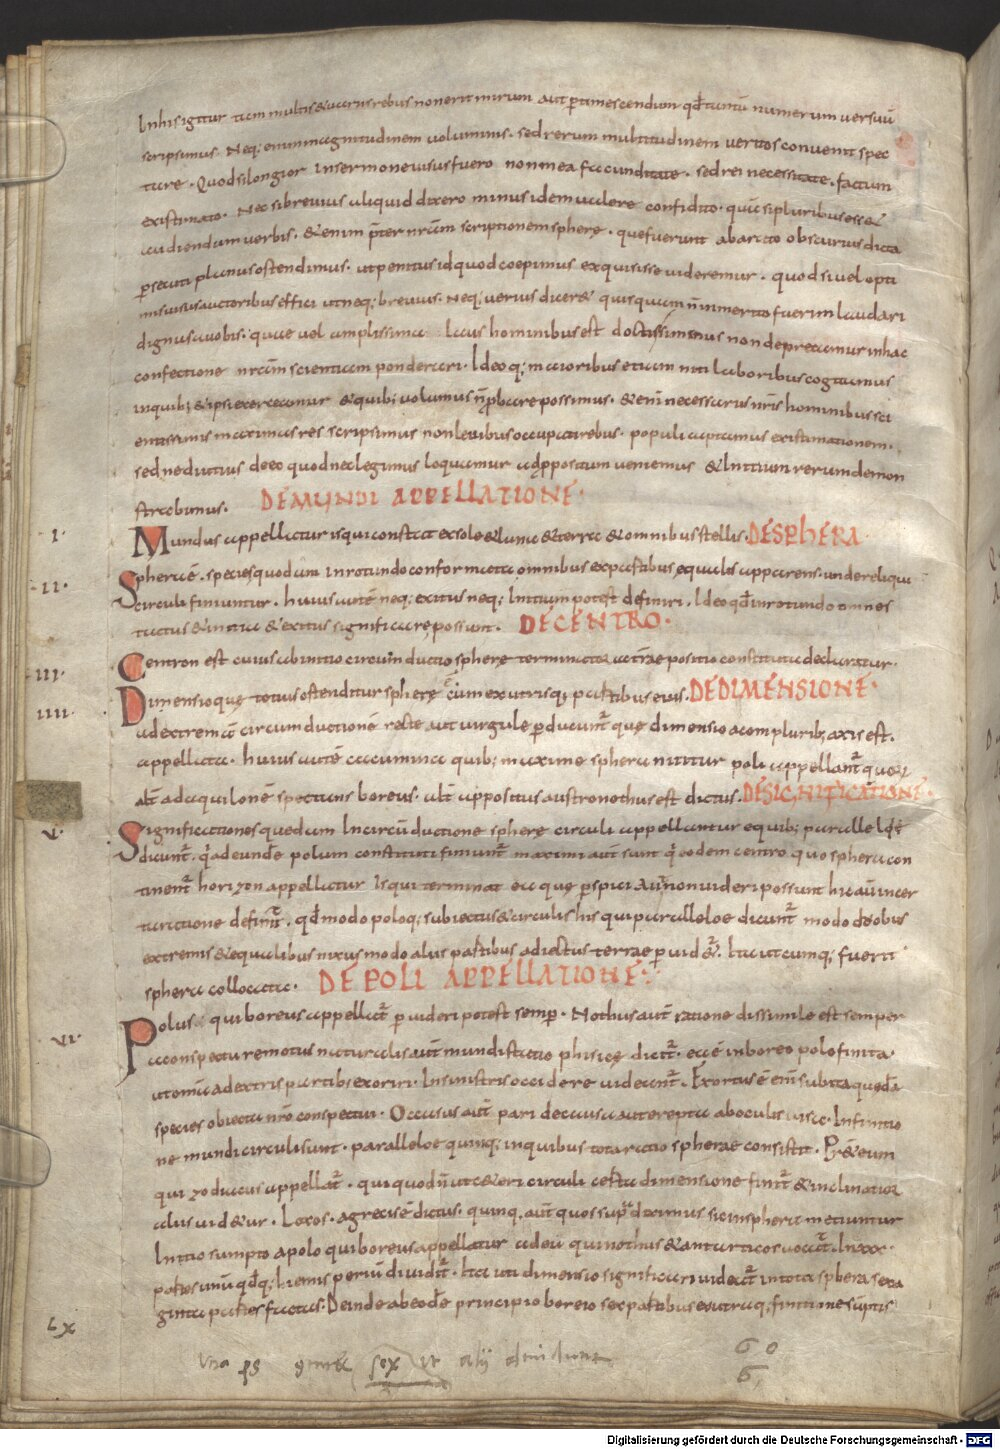 In his igitur tam multis & uariis rebus non erit mirum aut ptimescendum qđ tantũ numerum uersuũ
scripsimus. Neq; enim magnitudinem uoluminis. sed rerum multitudinem ueros conuenit spec
tare. Quod si longior in sermone uisus fuero non mea facunditate. sed rei necessitate. factum
existimato. Nec si breuius aliquid dixero minus idem ualere confidito. quã si pluribus ess&
audiendum uerbis. & enim p̃ter nr̃am scriptionem spherę. que fuerunt ab arato obscurius dicta
psecuti planius ostendimus. ut penitus id quod coepimus exquisisse uideremur. quod si uel opti
mis usus auctoribus effici ut neq; breuius. Neq; uerius dicer& quisquam ñ inmerito fuerim laudari
dignus a uobis. quae uel amplissima laus hominibus est doctissimus non deprecamur in hac
confectione nr̃am scientiam ponderari. Ideoq; maioribus etiam niti laboribus cogitamus
in quib; & ipsi exerceamur & quib; uolumus ñ pbare possimus. & eni necessariis nr̃is hominibus sci
entissimis maximas res scripsimus non leuibus occupati rebus. populi captamus existimationem.
sed ne diutius de eo quod neclegimus loquamur ad ppositum ueniemus & Initium rerum demon
strabimus. DE MUNDI APPELLATIONE.
I. Mundus appellatur is qui constat ex sole & luna & terra & omnibus stellis. DE SPHERA.
II. Sphera ẽ. species quodam in rotundo conformata omnibus ex partibus ęqualis apparens. unde reliqui
circuli finiuntur. huius autẽ neq; exitus neq; Initium potest definiri. Ideo qđ in rotundo omnes
tactus & initia & exitus significare possunt. DE CENTRO.
III. Centron est cuius ab initio circum ductio spherę terminatur ac terrae positio constituta declaratur.
IIII. Dimensio quę totius ostenditur spherę cum ex utrisq; partibus eius. DE DIMENSIONE.
ad extremã circum ductionẽ recte aut uirgule pducunt̃ que dimensio a compluribˢ axis est.
appellata. huius autẽ cacumina quib; maxime sphera nititur poli appellant̃ quorũ
alt̃ ad aquilonẽ spectans boreus. alt̃ appositus austro nothus est dictus. DE SIGNIFICATIONE.
V. Significationes quedam In circũ ductione spherę circuli appellantur e quib; paralleloe
dicunt̃. q̃ ad eundẽ polum constituti finiunt̃ maximi aũt sunt q̃ eodem centro quo sphera con
tinent̃ horizon appellatur is qui terminat ea que pspici aut non uideri possunt hic aũ incer
ta ratione definit̃. qđ modo poloq; subiectus & circulis his qui paralleloe dicunt̃ modo duobus
extremis & equalibus nixus modo aliis partibus adiectus terrae puid&̃. Ita utcumq; fuerit
sphera collocata. DE POLI APPELLATIONE.
VI. Polus qui boreus appellat̃ puideri potest semp. Nothus aũt ratione dissimile est semper
a conspectu remotus naturalis aũt mundi statio physicę dicit̃. ea ẽ in boreo polo finita.
ut omia a dextris partibˢ exoriri. In sinistris occidere uideant̃. Exortus ẽ eni subita quedã
species obiecta nr̃o conspectui. Occasus aũt pari de causa aut erepta ab oculis uisa. In finitio
ne mundi circuli sunt. paralleloe quinq; in quibus tota ratio spherae consistit. Pr&eum
qui zodiacus appellat̃. qui quod ñ ut c&eri circuli certa dimensione finit̃ & inclinatior
alius uid&ur. Loxos. a grecis ẽ dictus. quinq, aũt quos supr̃ diximus sic in sphera metiuntur
Initio sumpto a polo qui boreus appellatur ad eũ qui nothus & antarticos uocat̃. In xxx.
partes unũ qđq; hemisperiũ diuidit̃. Ita uti dimensio significari uideat̃ in tota sphera sexa
ginta partes factas. Deinde ab eodẽ principio boreio sex partibus ex utraq, finitione sũptis
lx
Vna ps sex
60
6
Digitalisierung gefördert durch die Deutsche Forschungsgemeinschaft - DFG